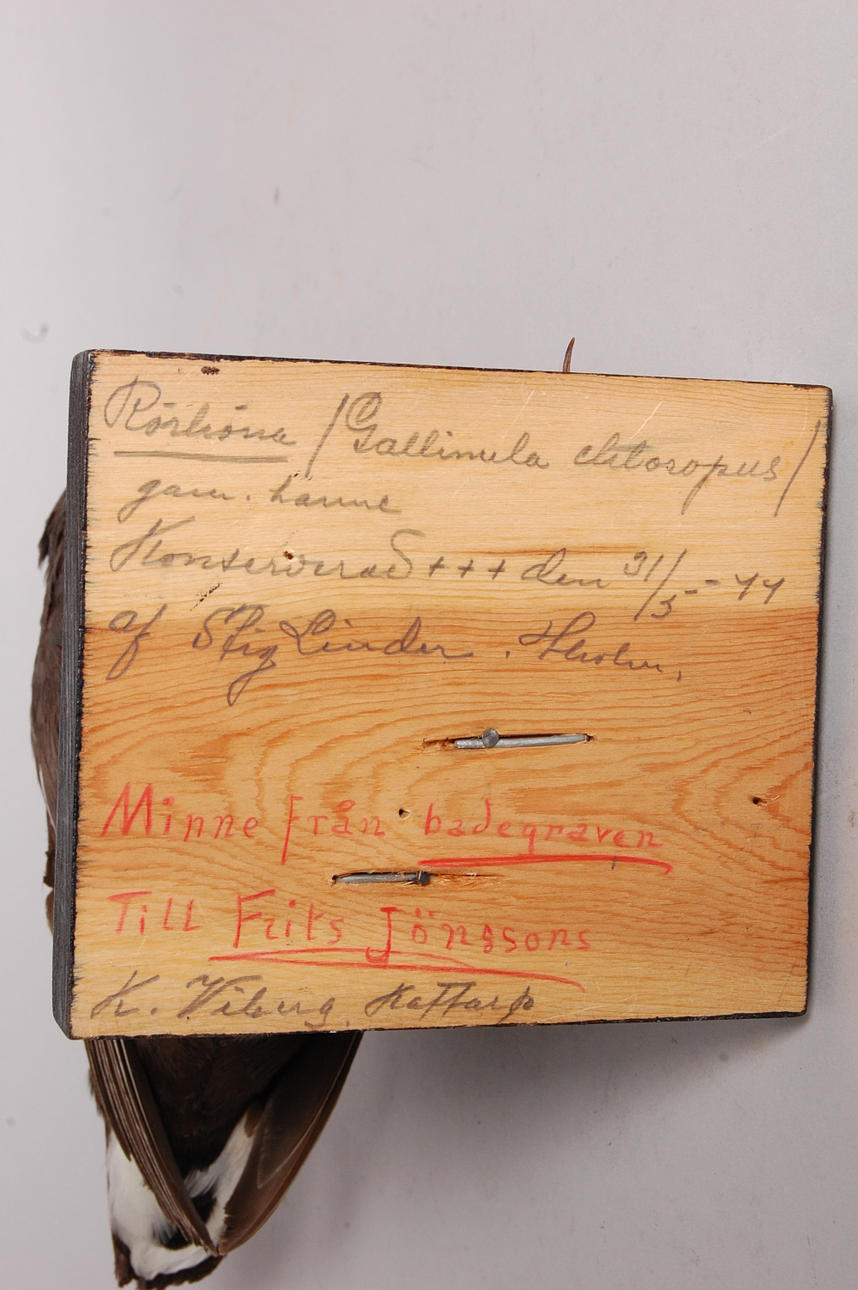 Rörhöna /Gallinula chloropus/
gam. hanne
Konserverad + + + den 31/5 - 44
af Stig Linder.
Minne från badegraven
Till Frits Jönssons
K. Viberg,